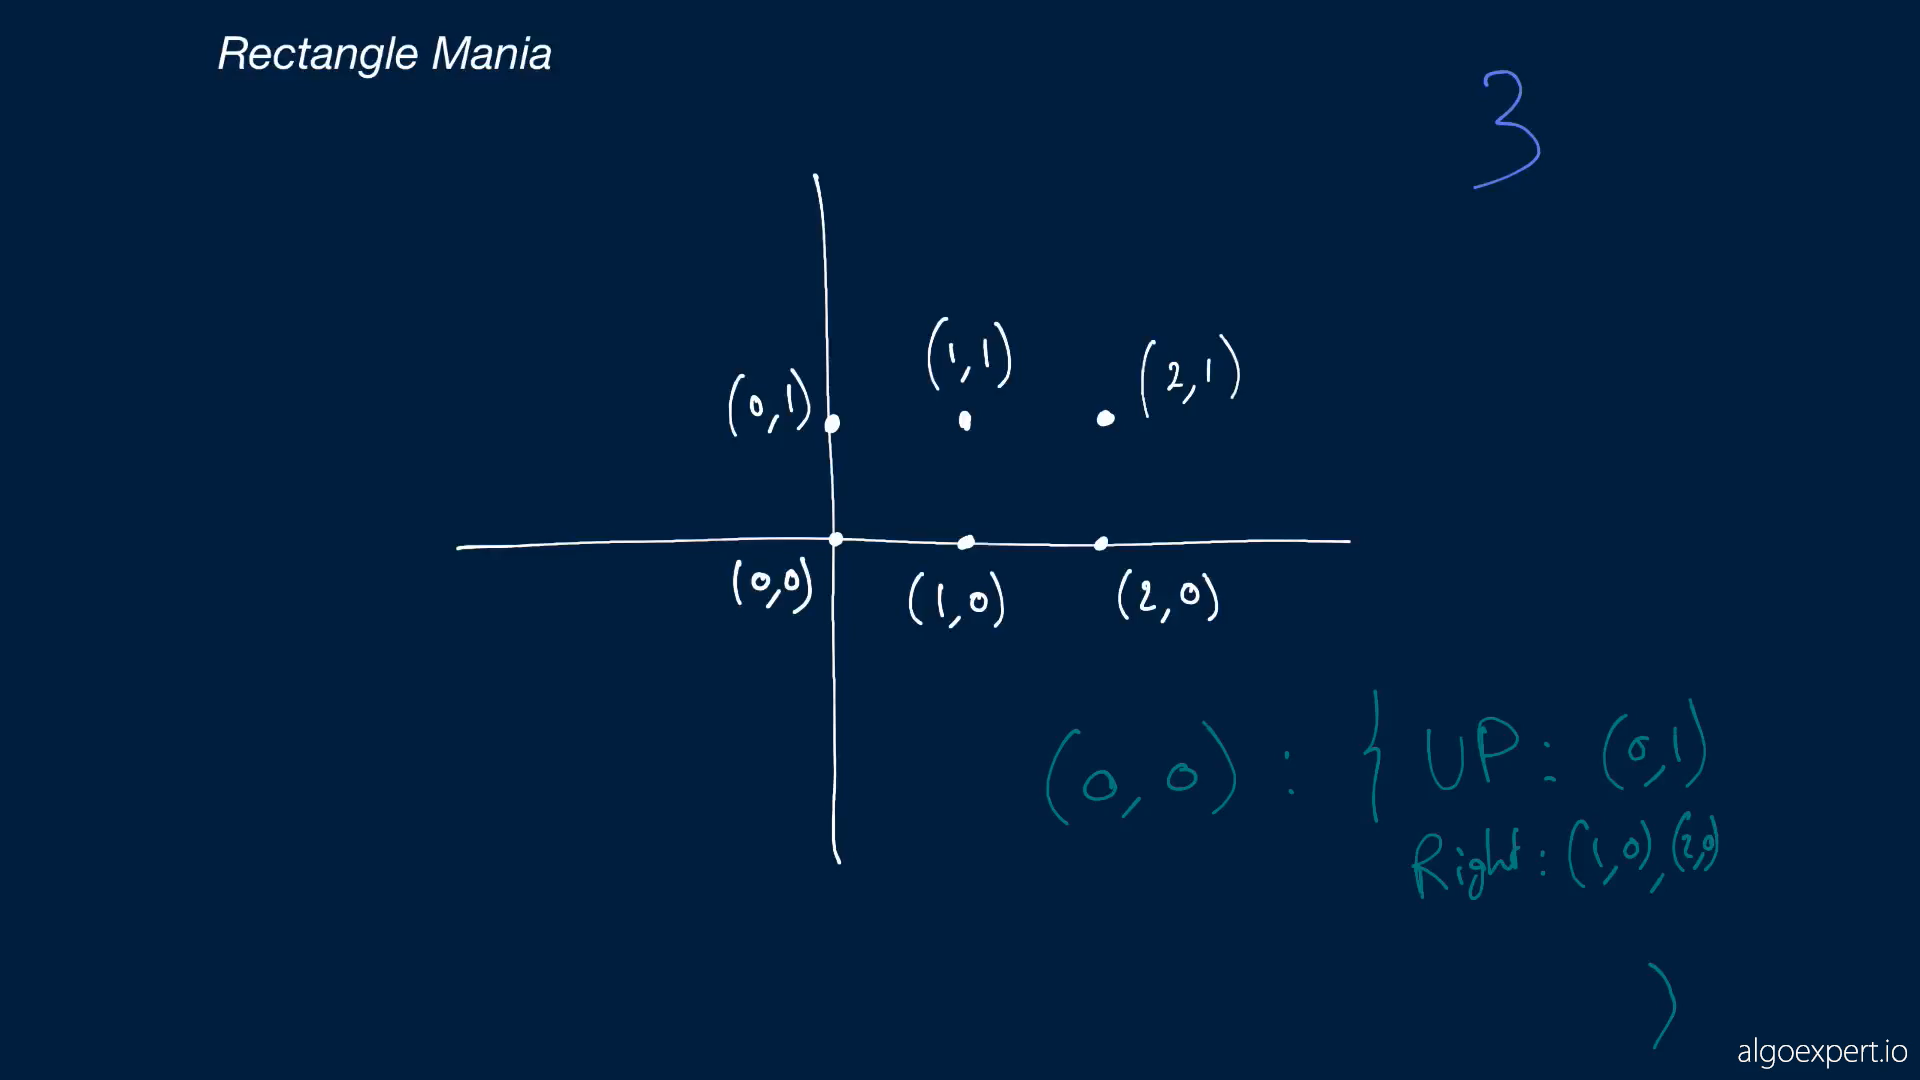 Rectangle Mania
3
(1,1)
(2,1)
(0,1)
(0,0)
(1,0)
(2,0)
(0,0) : { UP : (0,1)
Right : (1,0), (2,0)
)
algoexpert.io